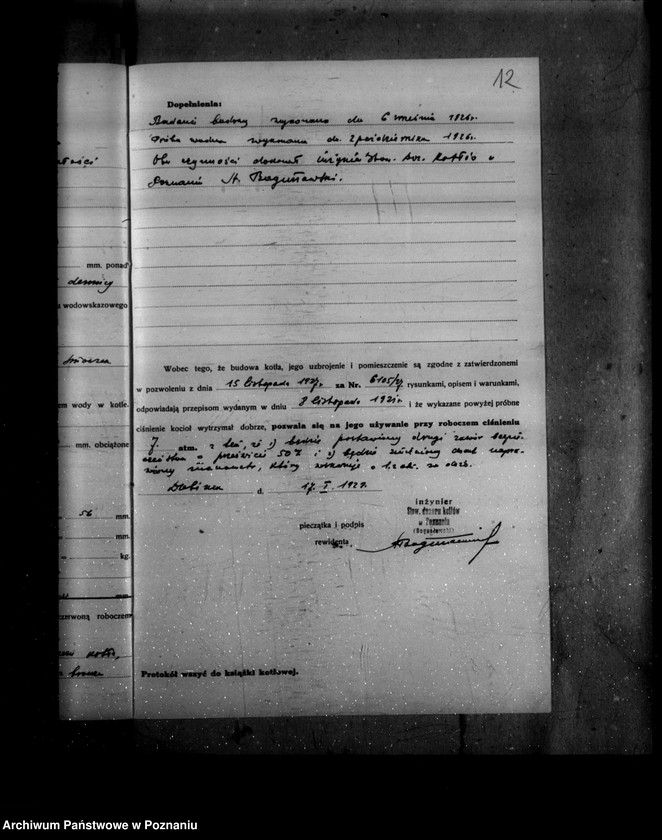 12
Dopełnienia:
Badanie budowy wykonano dn. 6 września 1926r.
Próba wodna wykonana dn. 2 października 1926r.
Obu czynności dokonał inżynier Stow. Doz. Kotłów w
Poznaniu St. Bogusławski.
mm. ponad
wodowskazowego
em wody w kotle.
mm. obciążone
56 mm.
mm.
kg.
mm.
czerwoną roboczem
kotła,
Wobec tego, że budowa kotła, jego uzbrojenie i pomieszczenie są zgodne z zatwierdzonemi
w pozwoleniu z dnia 15 listopada 1927r. za Nr. 6105/27 rysunkami, opisem i warunkami,
odpowiadają przepisom wydanym w dniu 8 listopada 1921r. i że wykazane powyżej próbne
ciśnienie kocioł wytrzymał dobrze, pozwala się na jego używanie przy roboczem ciśnieniu
7 atm. z tem, że 1) będzie postawiony drugi zawór bezpie-
czeństwa o prześwicie 50 % i 2) będzie
manometr, który wskazuje o
d. 17. I. 1929.
inżynier
Stow. dozoru kotłów
w Poznaniu
(Bogusławski)
pieczątka i podpis
rewidenta
Protokół wszyć do książki kotłowej.
Archiwum Państwowe w Poznaniu